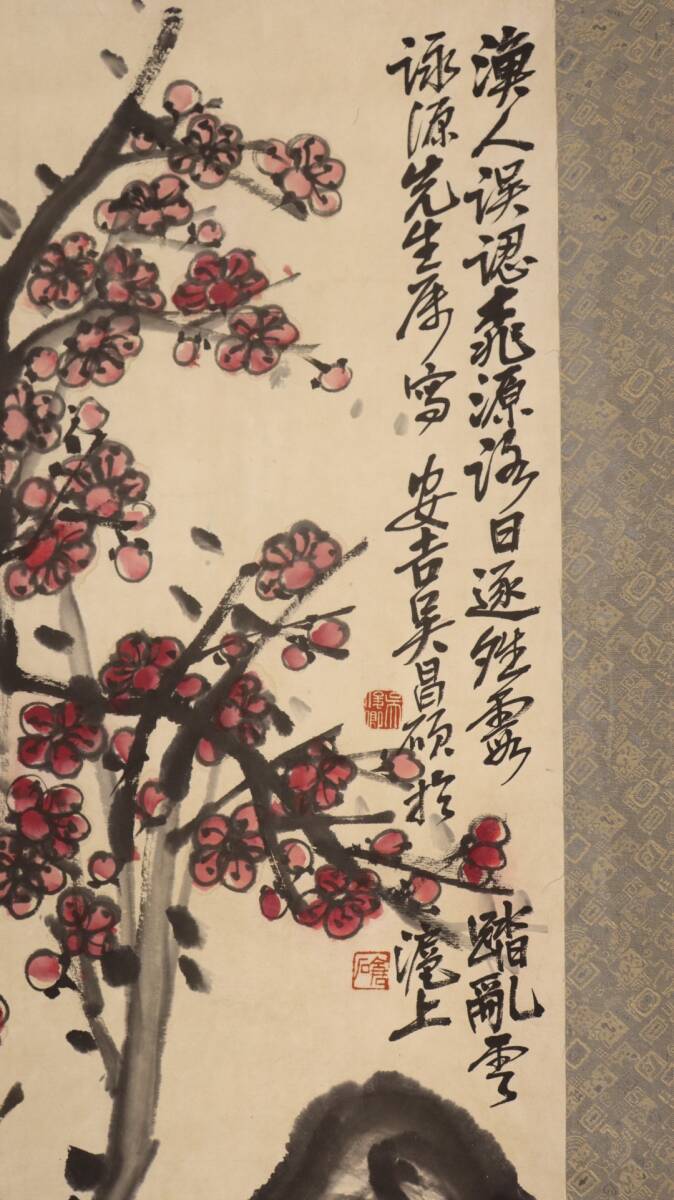 漁人誤認桃源路日逐絳霞踏亂雲
詠源先生屬寫安吉吳昌碩於滬上